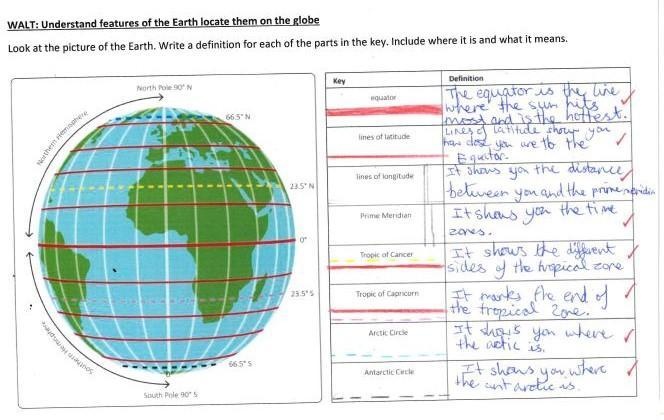 WALT: Understand features of the Earth locate them on the globe
Look at the picture of the Earth. Write a definition for each of the parts in the key. Include where it is and what it means.
North Pole 90° N
Northern Hemisphere
66.5° N
23.5° N
0°
23.5° S
66.5° S
Southern Hemisphere
South Pole 90° S
Key
Definition
equator
The equator is the line
where the sun hits
most and is the hottest.
lines of latitude
Lines of latitude show you
how close you are to the
Equator.
lines of longitude
It shows you the distance
between you and the prime meridian
Prime Meridian
It shows you the time
zones.
Tropic of Cancer
It shows the different
sides of the tropical zone
Tropic of Capricorn
It marks the end of
the tropical zone.
Arctic Circle
It shows you where
the actic is.
Antarctic Circle
It shows you where
the antarctic is.